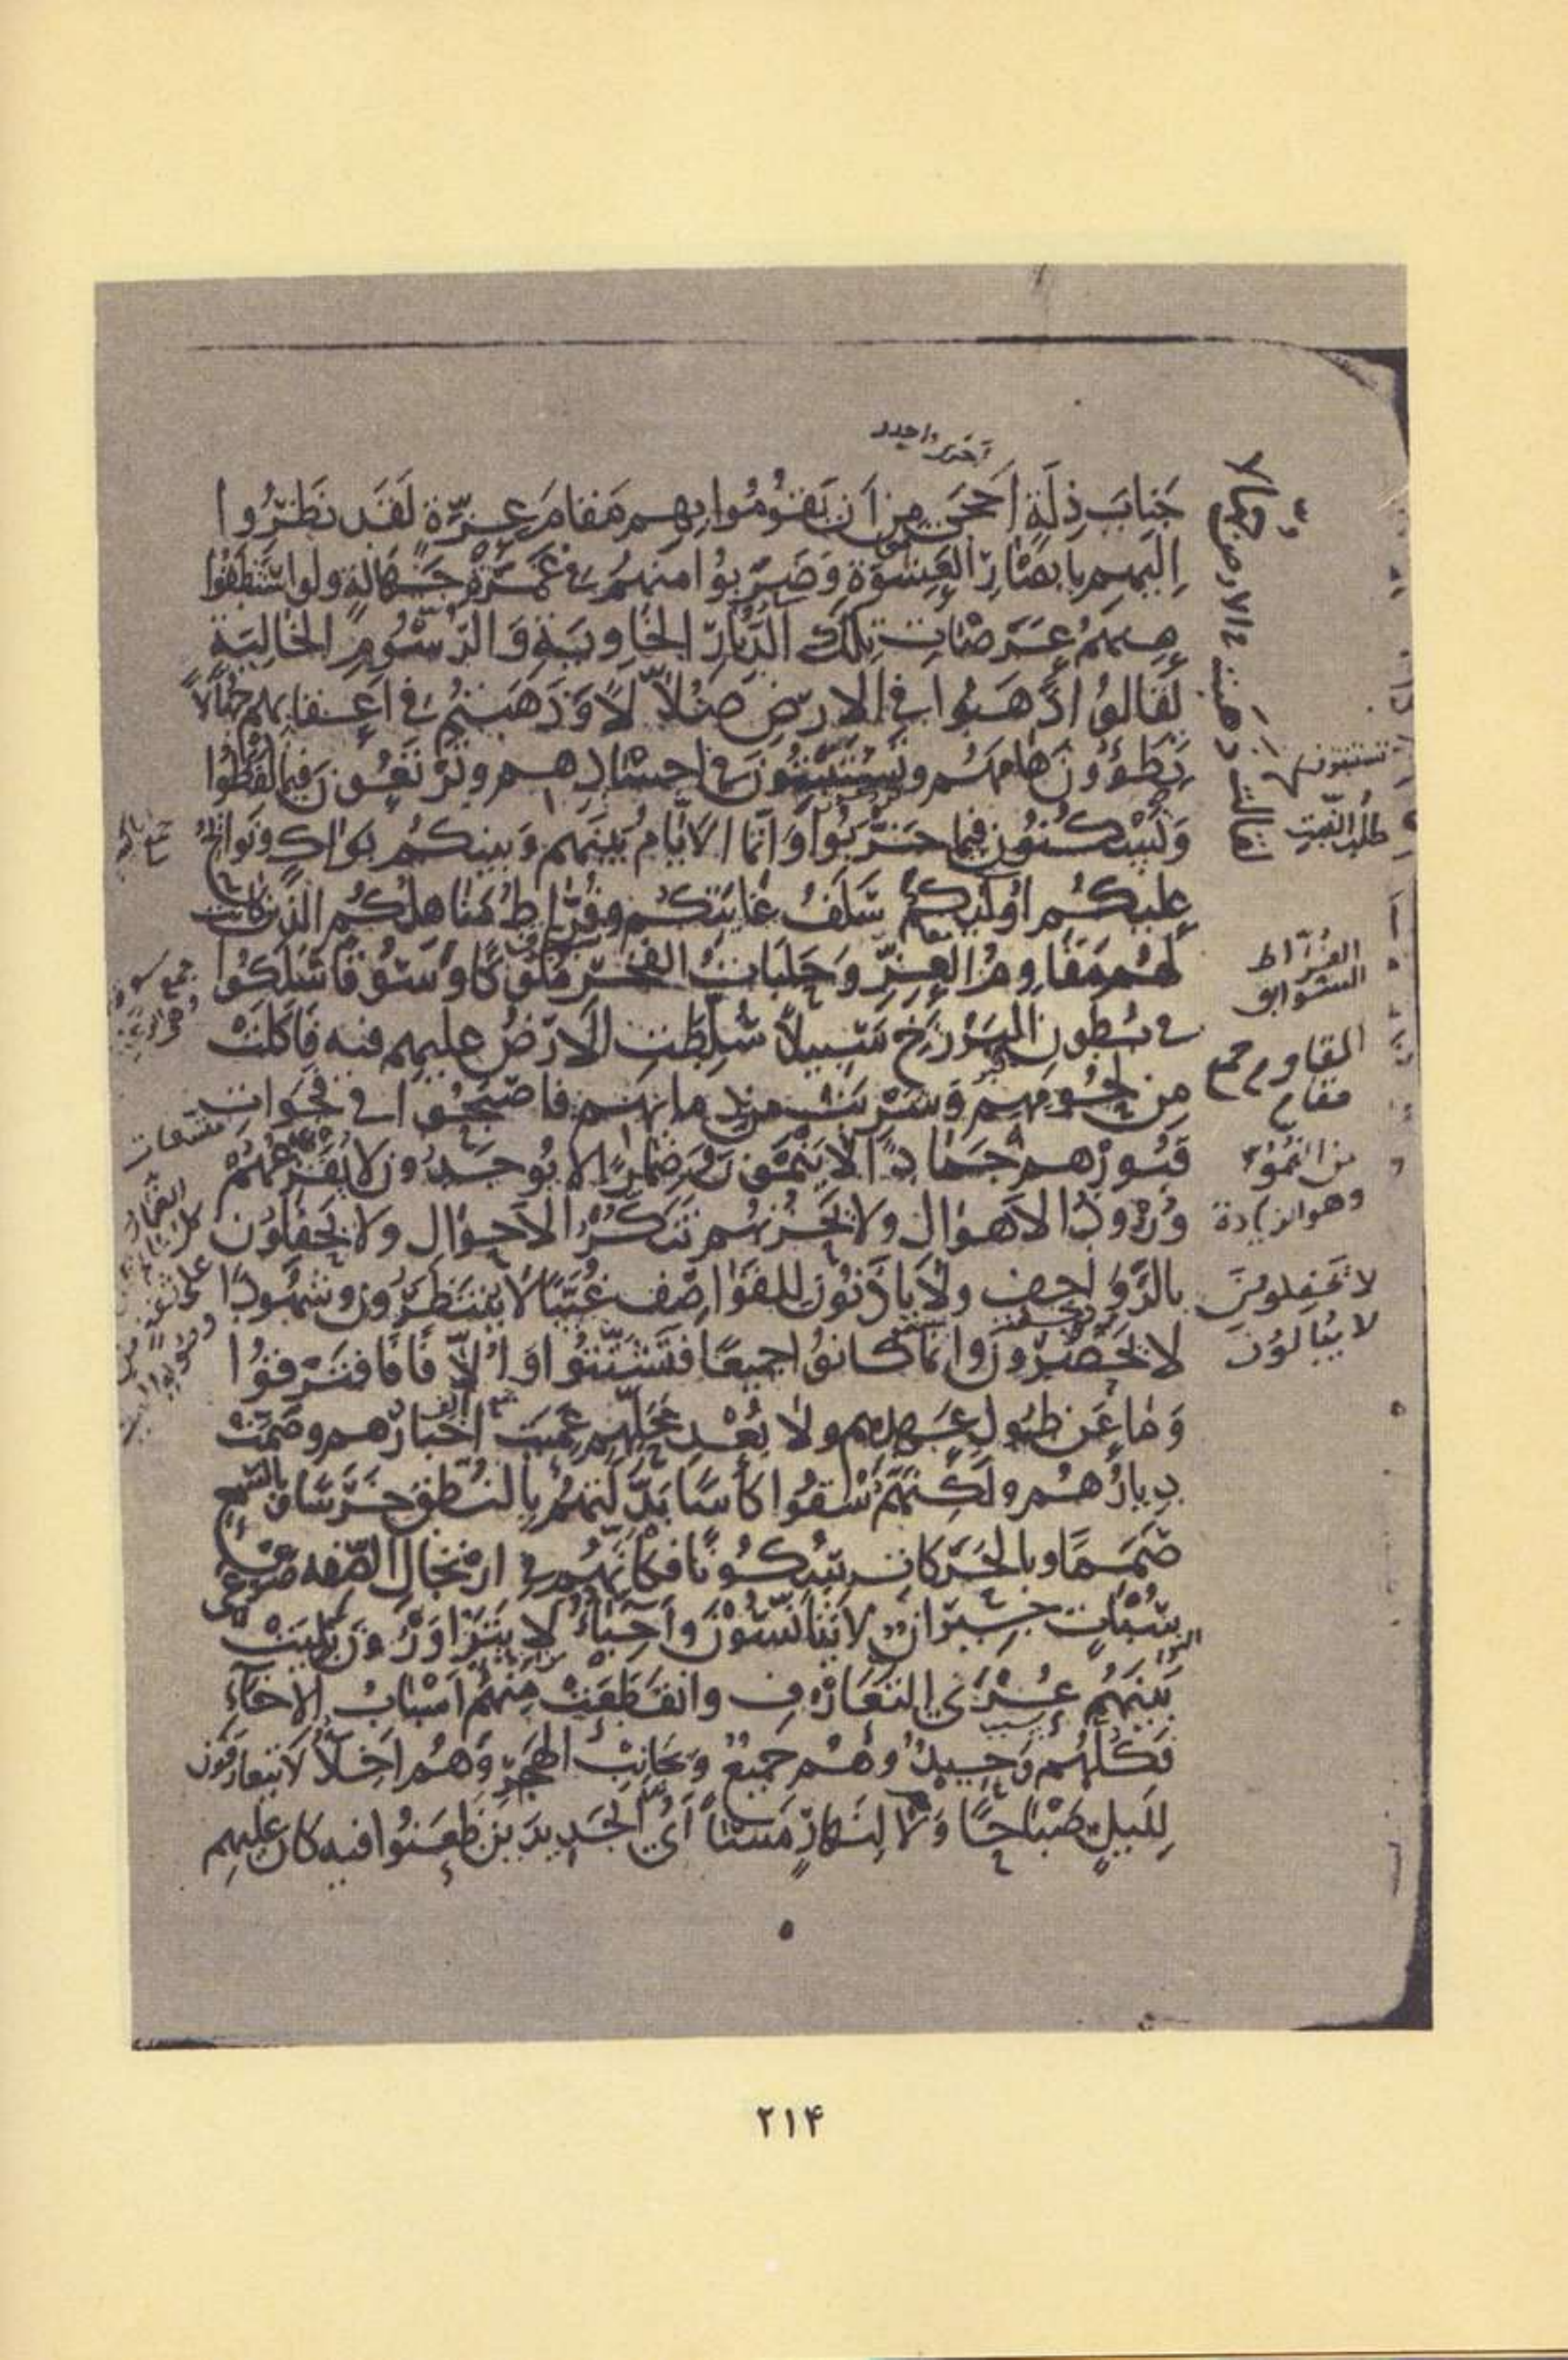 آخر واجدر
جَنَابَ ذِلَّةٍ أَحْجَى مِنْ أَنْ يَقُومُوا بِهِمْ مَقَامَ عِزَّةٍ لَقَدْ نَظَرُوا
إِلَيْهِمْ بِأَبْصَارِ الْعِشْوَةِ وَضَرَبُوا مِنْهُمْ فِي غَمْرَةِ جَهَالَةٍ وَلَوِ اسْتَنْطَقُوا
عَنْهُمْ عَرَصَاتِ تِلْكَ الدِّيَارِ الْخَاوِيَةِ وَالرُّسُومِ الْخَالِيَةِ
لَقَالُوا ذَهَبُوا فِي الْأَرْضِ ضُلَّالًا وَذَهَبْتُمْ فِي أَعْقَابِهِمْ جُهَّالًا
تَطَؤُونَ هَامَهُمْ وَتَسْتَثْبِتُونَ فِي أَجْسَادِهِمْ وَتَرْتَعُونَ فِيمَا لَفَظُوا
وَتَسْكُنُونَ فِيمَا خَرَّبُوا وَإِنَّمَا الْأَيَّامُ بَيْنَهُمْ وَبَيْنَكُمْ بَوَاكٍ وَنَوَائِحُ
عَلَيْكُمْ أُولَئِكُمْ سَلَفُ غَايَتِكُمْ وَفُرَّاطُ مَنَاهِلِكُمْ الَّذِينَ كَانَتْ
لَهُمْ مَقَاوِمُ الْعِزِّ وَحَلَبَاتُ الْفَخْرِ مُلُوكًا وَسُوَقًا سَلَكُوا
فِي بُطُونِ الْبَرْزَخِ سَبِيلًا سُلِّطَتِ الْأَرْضُ عَلَيْهِمْ فِيهِ فَأَكَلَتْ
مِنْ لُحُومِهِمْ وَشَرِبَتْ مِنْ دِمَائِهِمْ فَأَصْبَحُوا فِي فَجَوَاتِ
قُبُورِهِمْ جَمَادًا لَا يَنْمُونَ وَضِمَارًا لَا يُوجَدُونَ لَا يُفْزِعُهُمْ
وُرُودُ الْأَهْوَالِ وَلَا يَحْزُنُهُمْ تَنَكُّرُ الْأَحْوَالِ وَلَا يَحْفِلُونَ
بِالرَّوَاجِفِ وَلَا يَأْذَنُونَ لِلْقَوَاصِفِ غُيَّبًا لَا يُنْتَظَرُونَ وَشُهُودًا
لَا يَحْضُرُونَ وَإِنَّمَا كَانُوا جَمِيعًا فَتَشَتَّتُوا وَأُلَّافًا فَافْتَرَقُوا
وَمَا عَنْ طُولِ عَهْدِهِمْ وَلَا بُعْدِ مَحَلِّهِمْ عَمِيَتْ أَخْبَارُهُمْ وَصَمَّتْ
دِيَارُهُمْ وَلَكِنَّهُمْ سُقُوا كَأْسًا بَدَّلَتْهُمْ بِالنُّطْقِ خَرَسًا وَبِالسَّمْعِ
صَمَمًا وَبِالْحَرَكَاتِ سُكُونًا فَكَأَنَّهُمْ فِي ارْتِجَالِ الصِّفَةِ صَرْعَى
سُبَاتٍ جِيرَانٌ لَا يَتَأَنَّسُونَ وَأَحِبَّاءُ لَا يَتَزَاوَرُونَ بَلِيَتْ
بَيْنَهُمْ عُرَى التَّعَارُفِ وَانْقَطَعَتْ مِنْهُمْ أَسْبَابُ الْإِخَاءِ
فَكُلُّهُمْ وَحِيدٌ وَهُمْ جَمِيعٌ وَبِجَانِبِ الْهَجْرِ وَهُمْ أَخِلَّاءُ لَا يَتَعَارَفُونَ
لِلَيْلٍ صَبَاحًا وَلَا لِنَهَارٍ مَسَاءً أَيُّ الْجَدِيدَيْنِ ظَعَنُوا فِيهِ كَانَ عَلَيْهِمْ
طلب الثبت
الفرّاط
السوابق
المقاوم جمع
مقام
من النموّ
وهو الزيادة
لا يحفلون
لا يبالون
متسعات
۲۱۴